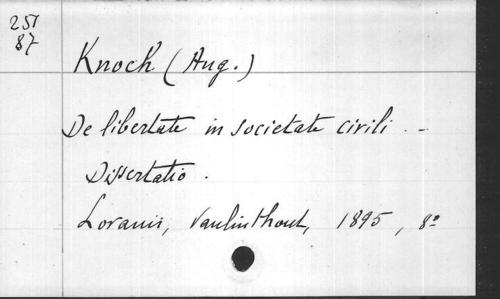 251
87
Knoch (Aug.)
De libertate in societate civili. -
Dissertatio.
Lovanii, Vanlinthout, 1895, 8º